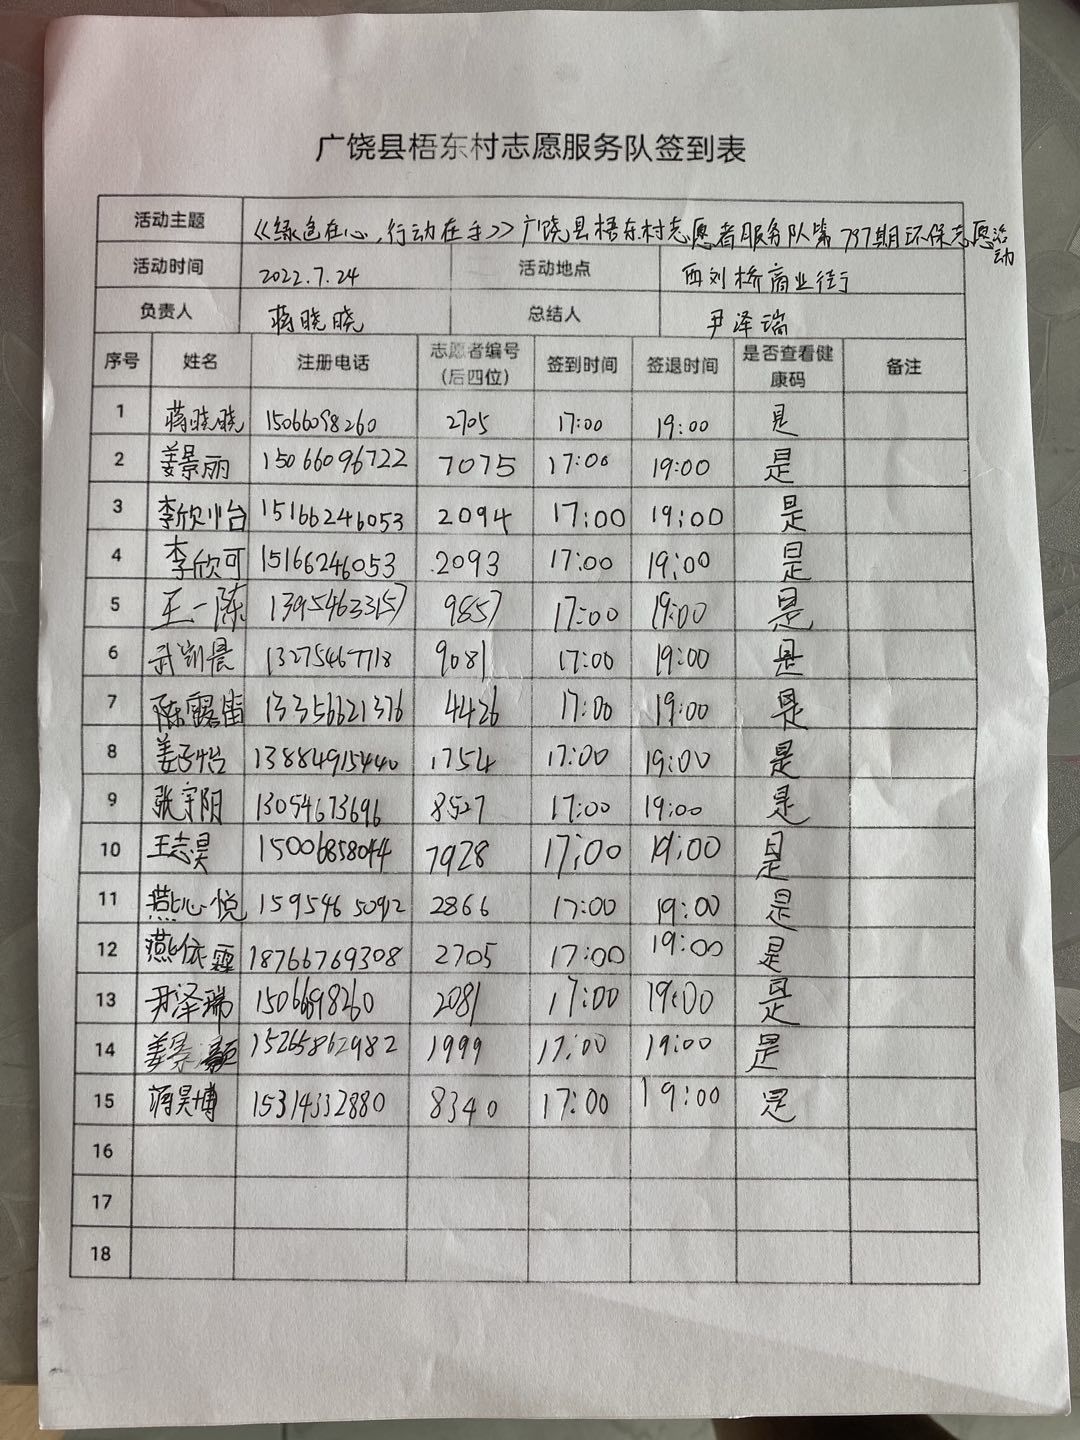 广饶县梧东村志愿服务队签到表
活动主题 《绿色在心,行动在手》广饶县梧东村志愿者服务队第797期环保志愿活动
活动时间 2022.7.24 活动地点 西刘桥商业街
负责人 蒋晓晓 总结人 尹泽瑞
序号 姓名 注册电话 志愿者编号(后四位) 签到时间 签退时间 是否查看健康码 备注
1 蒋晓晓 15066098260 2705 17:00 19:00 是
2 姜景丽 15066096722 7075 17:00 19:00 是
3 李欣 15166246053 2094 17:00 19:00 是
4 李欣可 15166246053 2093 17:00 19:00 是
5 王一陈 13954633157 9857 17:00 19:00 是
6 武 晨 13275467718 9081 17:00 19:00 是
7 陈露 13356621376 4426 17:00 19:00 是
8 姜子怡 13884915440 1754 17:00 19:00 是
9 张宇阳 13054673696 8527 17:00 19:00 是
10 王志昊 15006858044 7928 17:00 19:00 是
11 燕心悦 15954650912 2866 17:00 19:00 是
12 燕依霖 18766769308 2705 17:00 19:00 是
13 尹泽瑞 2081 17:00 19:00 是
14 姜景灏 15265862982 1999 17:00 19:00 是
15 蒋昊博 15314332880 8340 17:00 19:00 是
16
17
18